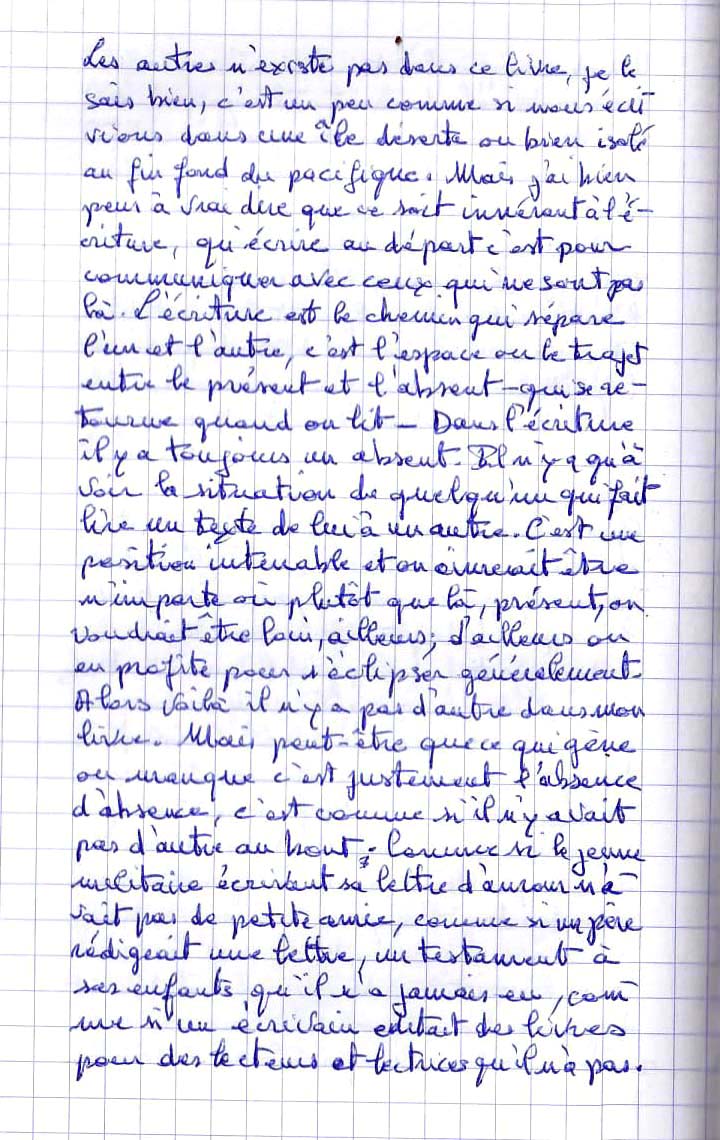 Les autres n'existe pas dans ce livre, je le
sais bien, c'est un peu comme si nous écri
vions dans une île déserte ou bien isolé
au fin fond du pacifique. Mais j'ai bien
peur à vrai dire que ce soit innérant à l'é-
criture, qu'écrire au départ c'est pour
communiquer avec ceux qui ne sont pas
là. L'écriture est le chemin qui sépare
l'un et l'autre, c'est l'espace ou le trajet
entre le présent et l'absent - qui se re-
tourne quand on lit - Dans l'écriture
il y a toujours un absent. Il n'y a qu'à
voir la situation de quelqu'un qui fait
lire un texte de lui à un autre. C'est une
position intenable et on aimerait être
n'importe où plutôt que là, présent, on
voudrait être loin, ailleurs; d'ailleurs on
en profite pour s'éclipser généralement.
Alors voilà il n'y a pas d'autre dans mon
livre. Mais peut-être que ce qui gène
ou manque c'est justement l'absence
d'absence, c'est comme s'il n'y avait
pas d'autre au bout; Comme si le jeune
militaire écrivant sa lettre d'amour n'a-
vait pas de petite amie, comme si un père
rédigeait une lettre, un testament à
ses enfants qu'il n'a jamais eu, com
me si un écrivain editait des livres
pour des lecteurs et lectrices qu'il n'a pas.